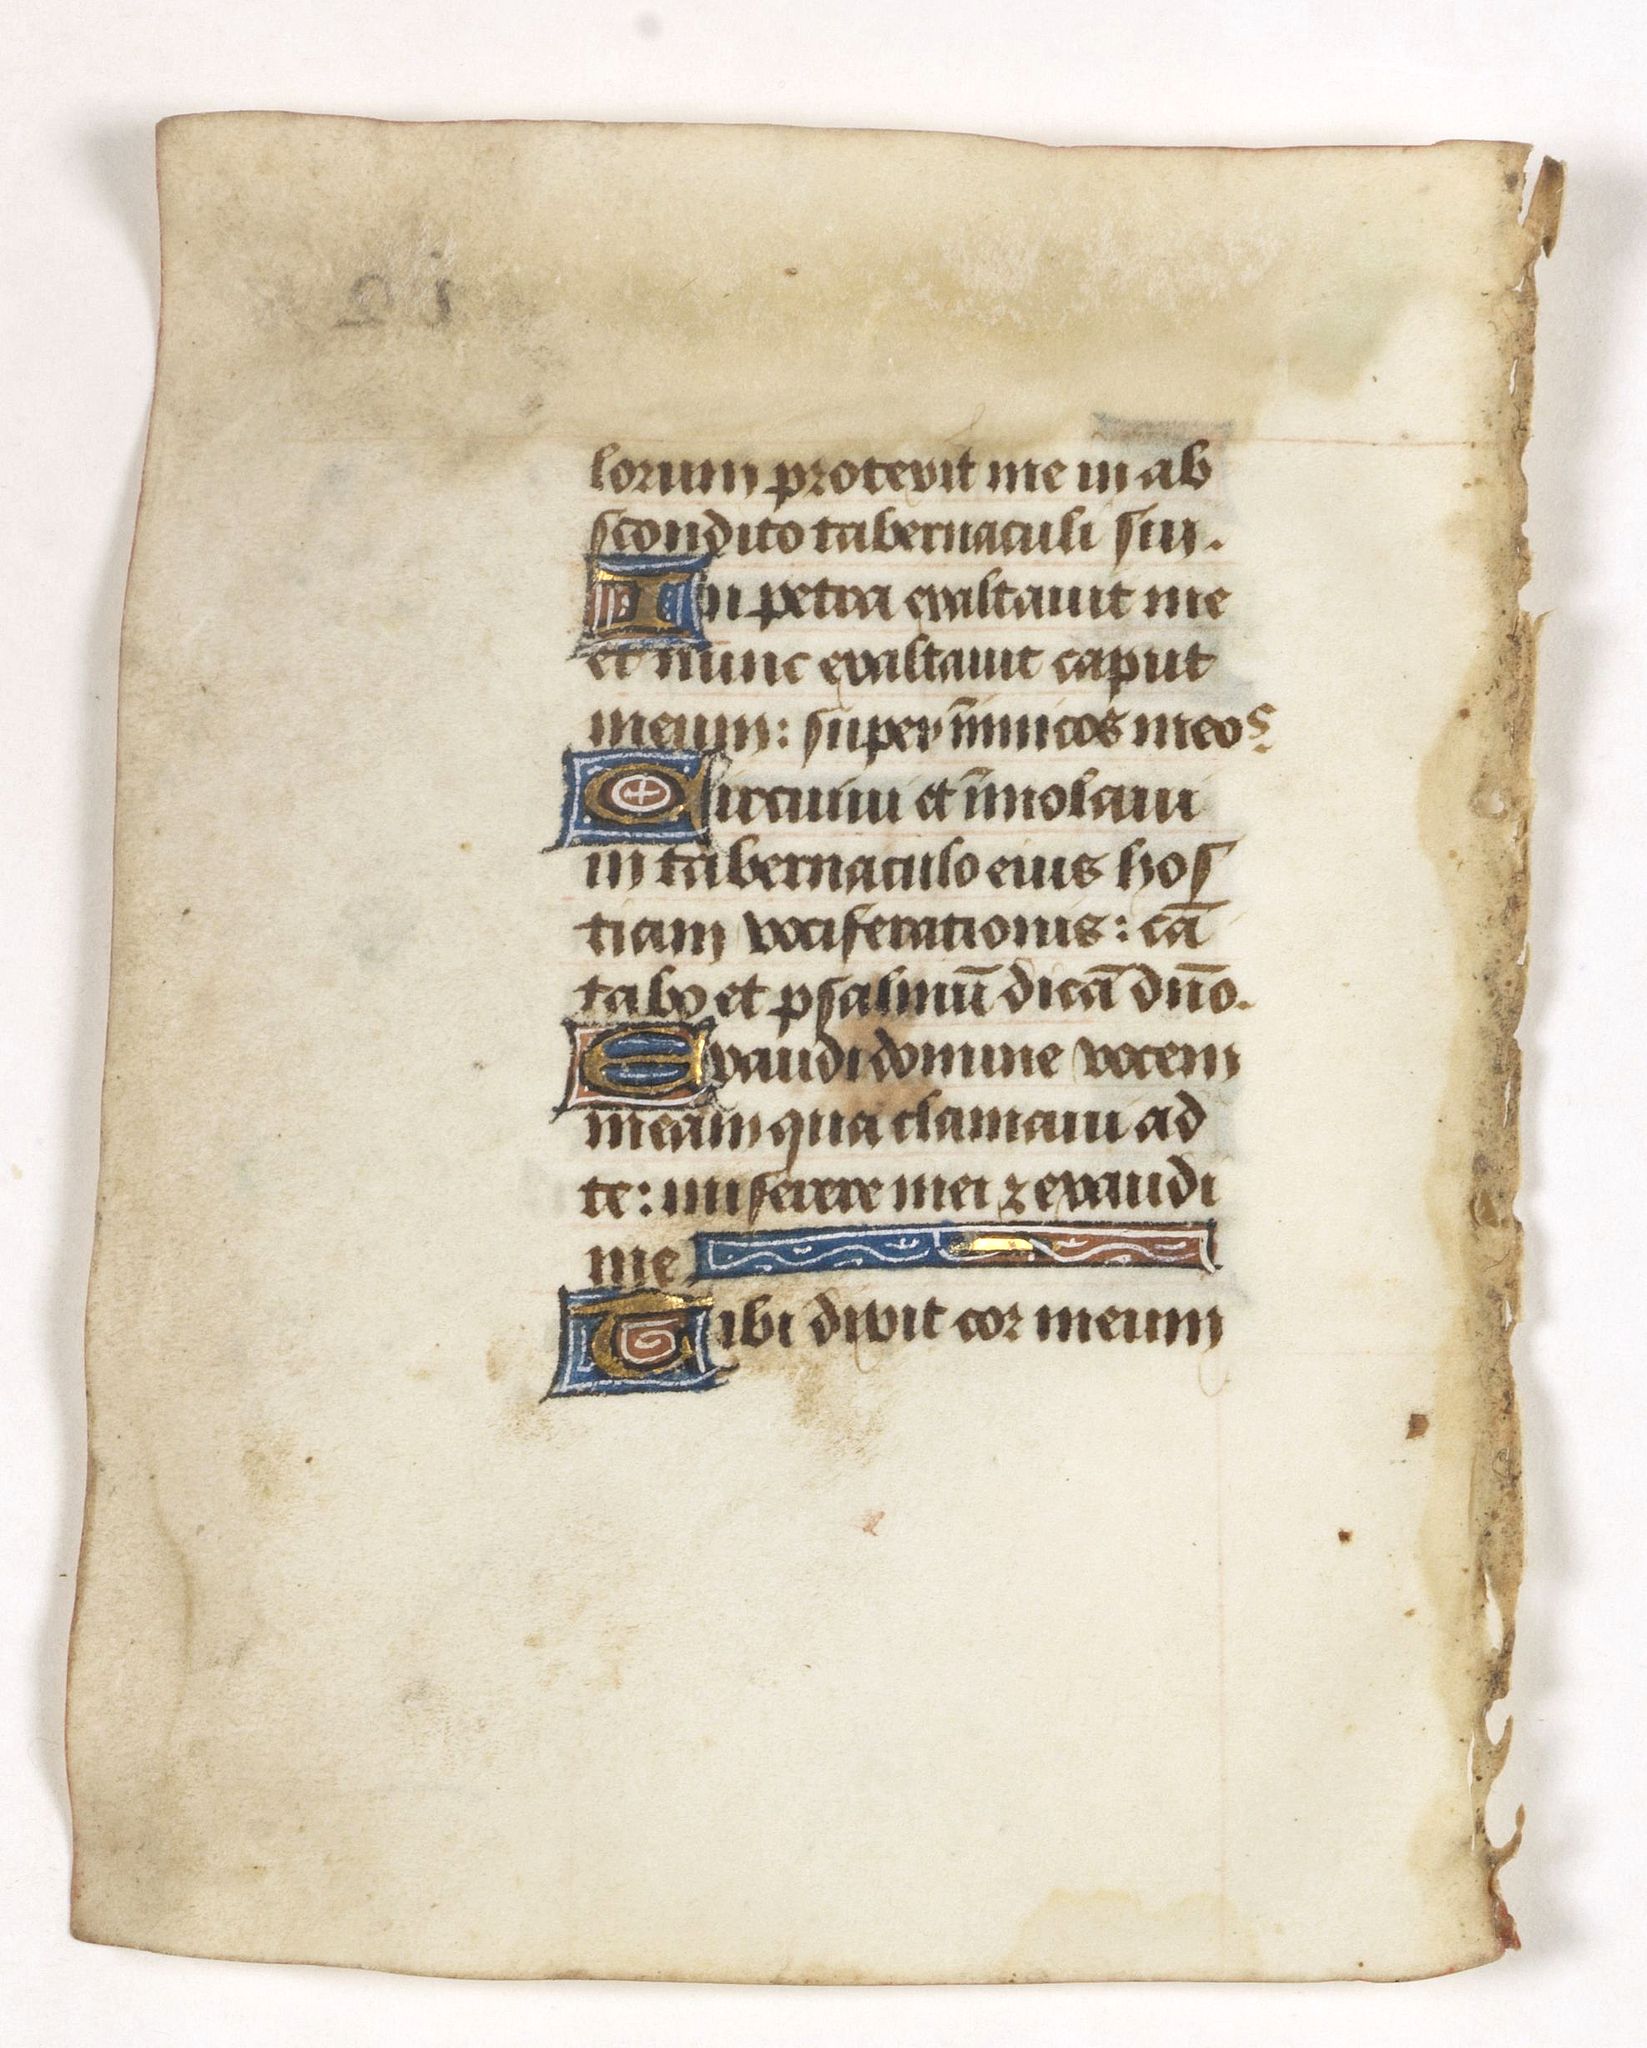 lorum protexit me in ab
scondito tabernaculi sui.
In petra exaltauit me
et nunc exaltauit caput
meum: super īimicos meos
Circuiui et īmolaui
in tabernaculo eius hos
tiam vociferationis: cā
tabo et psalmū dicā dn̄o.
Exaudi domine vocem
meam qua clamaui ad
te: miserere mei ⁊ exaudi
me
Tibi dixit cor meum